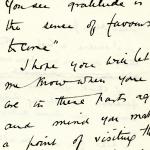 You see gratitude is
the sense of favours
to come"
I hope you will let
me know when you
are in these parts ag
and mind you mak
a point of visiting th